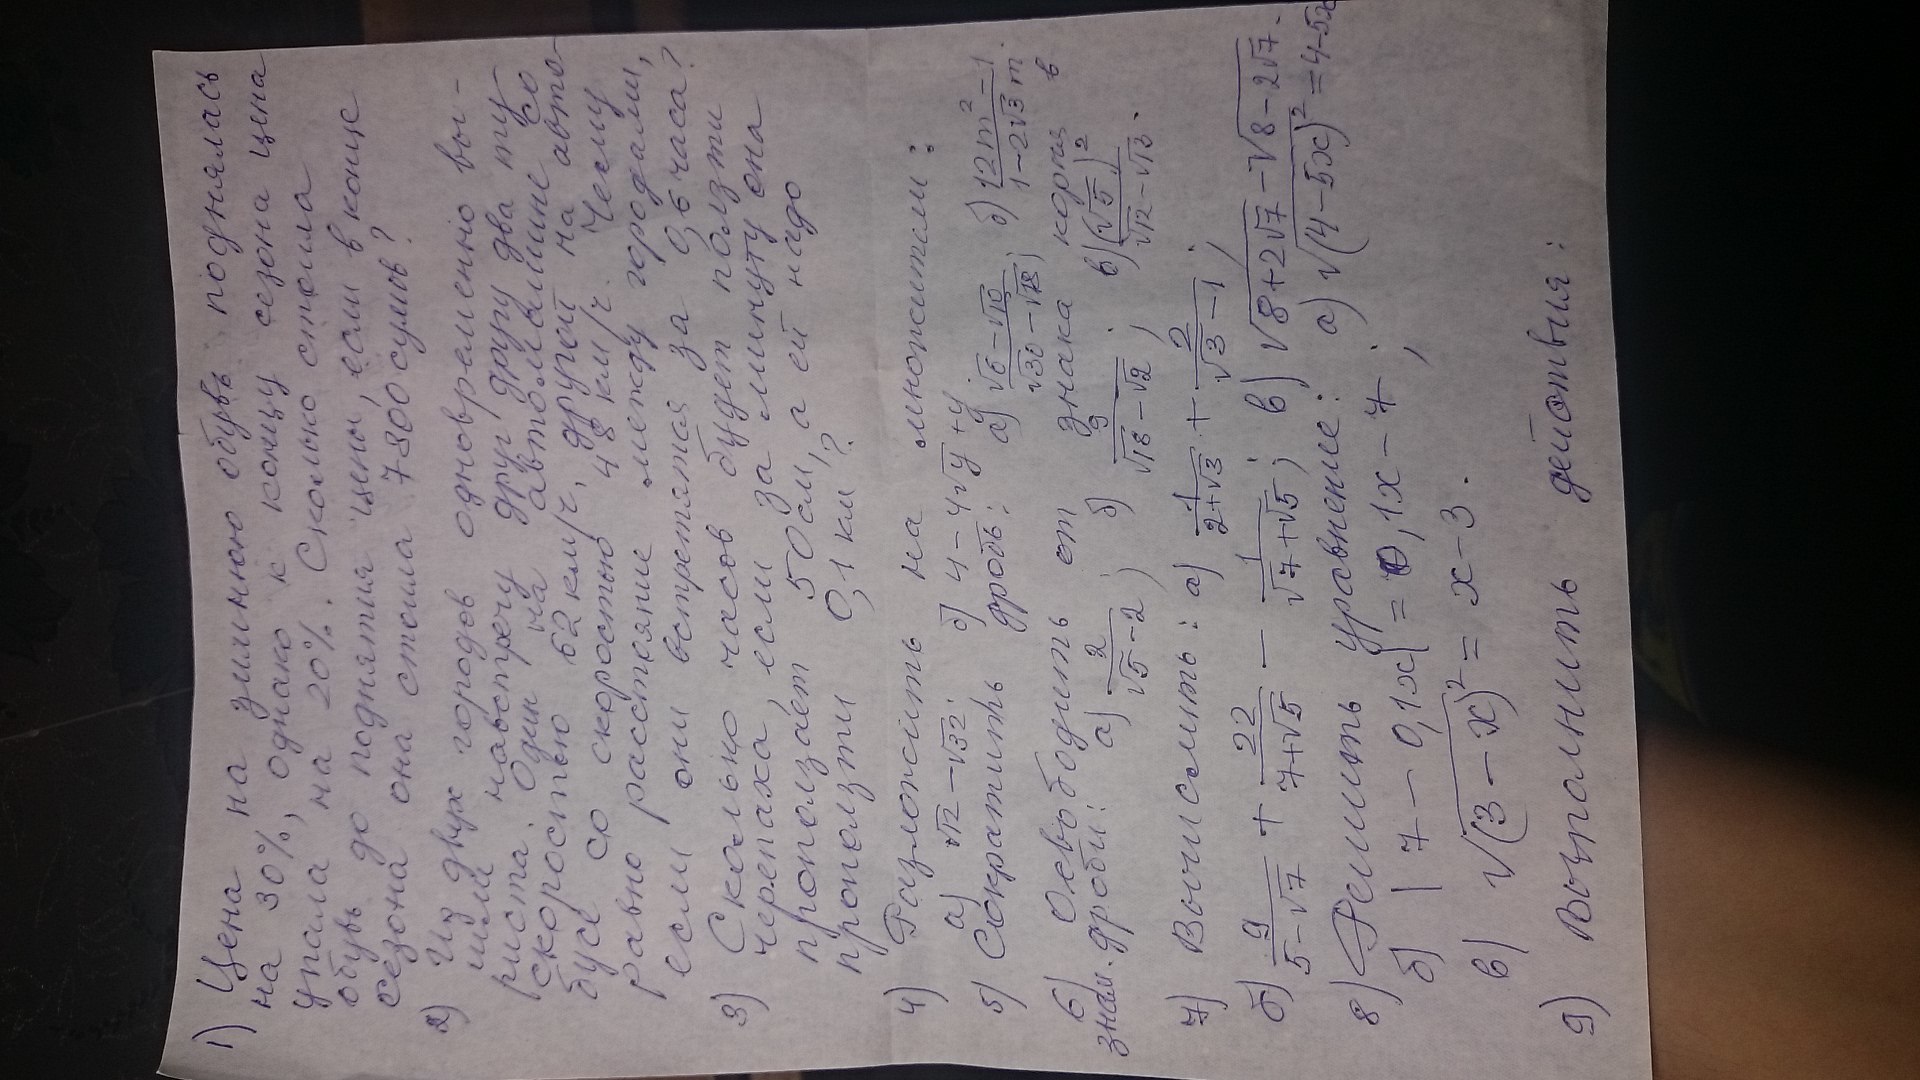 1) Цена на зимнюю обувь поднялась
на 30%, однако к концу сезона цена
упала на 20%. Сколько стоила
обувь до поднятия цены, если в конце
сезона она стоила 7800 сумов?
2) Из двух городов одновременно вы-
шли навстречу друг другу два ту-
риста. Один на автомашине со
скоростью 62 км/ч, другой на авто-
бусе со скоростью 48 км/ч. Чему
равно расстояние между городами,
если они встретятся за 0,6 часа?
3) Сколько часов будет ползти
черепаха, если за минуту она
проползает 50 см, а ей надо
проползти 0,1 км?
4) Разложить на множители:
а) √12 − √32; б) 4 − 4√y + y.
5) Сократить дробь: а) (√6 − √10)/(√30 − √18); б) (12m² − 1)/(1 − 2√3 m).
6) Освободить от знака корня в
знам. дроби: а) 2/(√5 − 2); б) 9/(√18 − √2); в) (√5)²/(√12 − √13).
7) Вычислить: а) 1/(2+√3) + 2/(√3 − 1);
б) 9/(5 − √7) + 22/(7+√5) − 1/(√7+√5); в) √(8+2√7) − √(8 − 2√7).
8) Решить уравнение: а) √(4 − 5x)² = 4 − 5x
б) |7 − 0,1x| = 0,1x − 7;
в) √(3 − x)² = x − 3.
9) Выполнить действия: